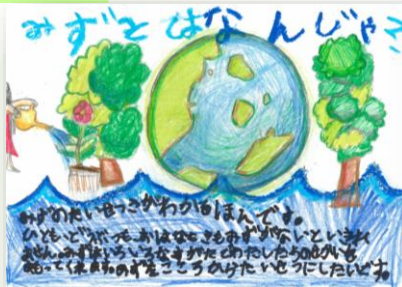 みずとはなんじゃ?
みずのたいせつさがわかるほんです。
ひとも、どうぶつも、おはなも、きもみずがないといきれ
ません。みずはいろいろなすがたでわたしたちの
みずをこころがけたいせつにしたいです。